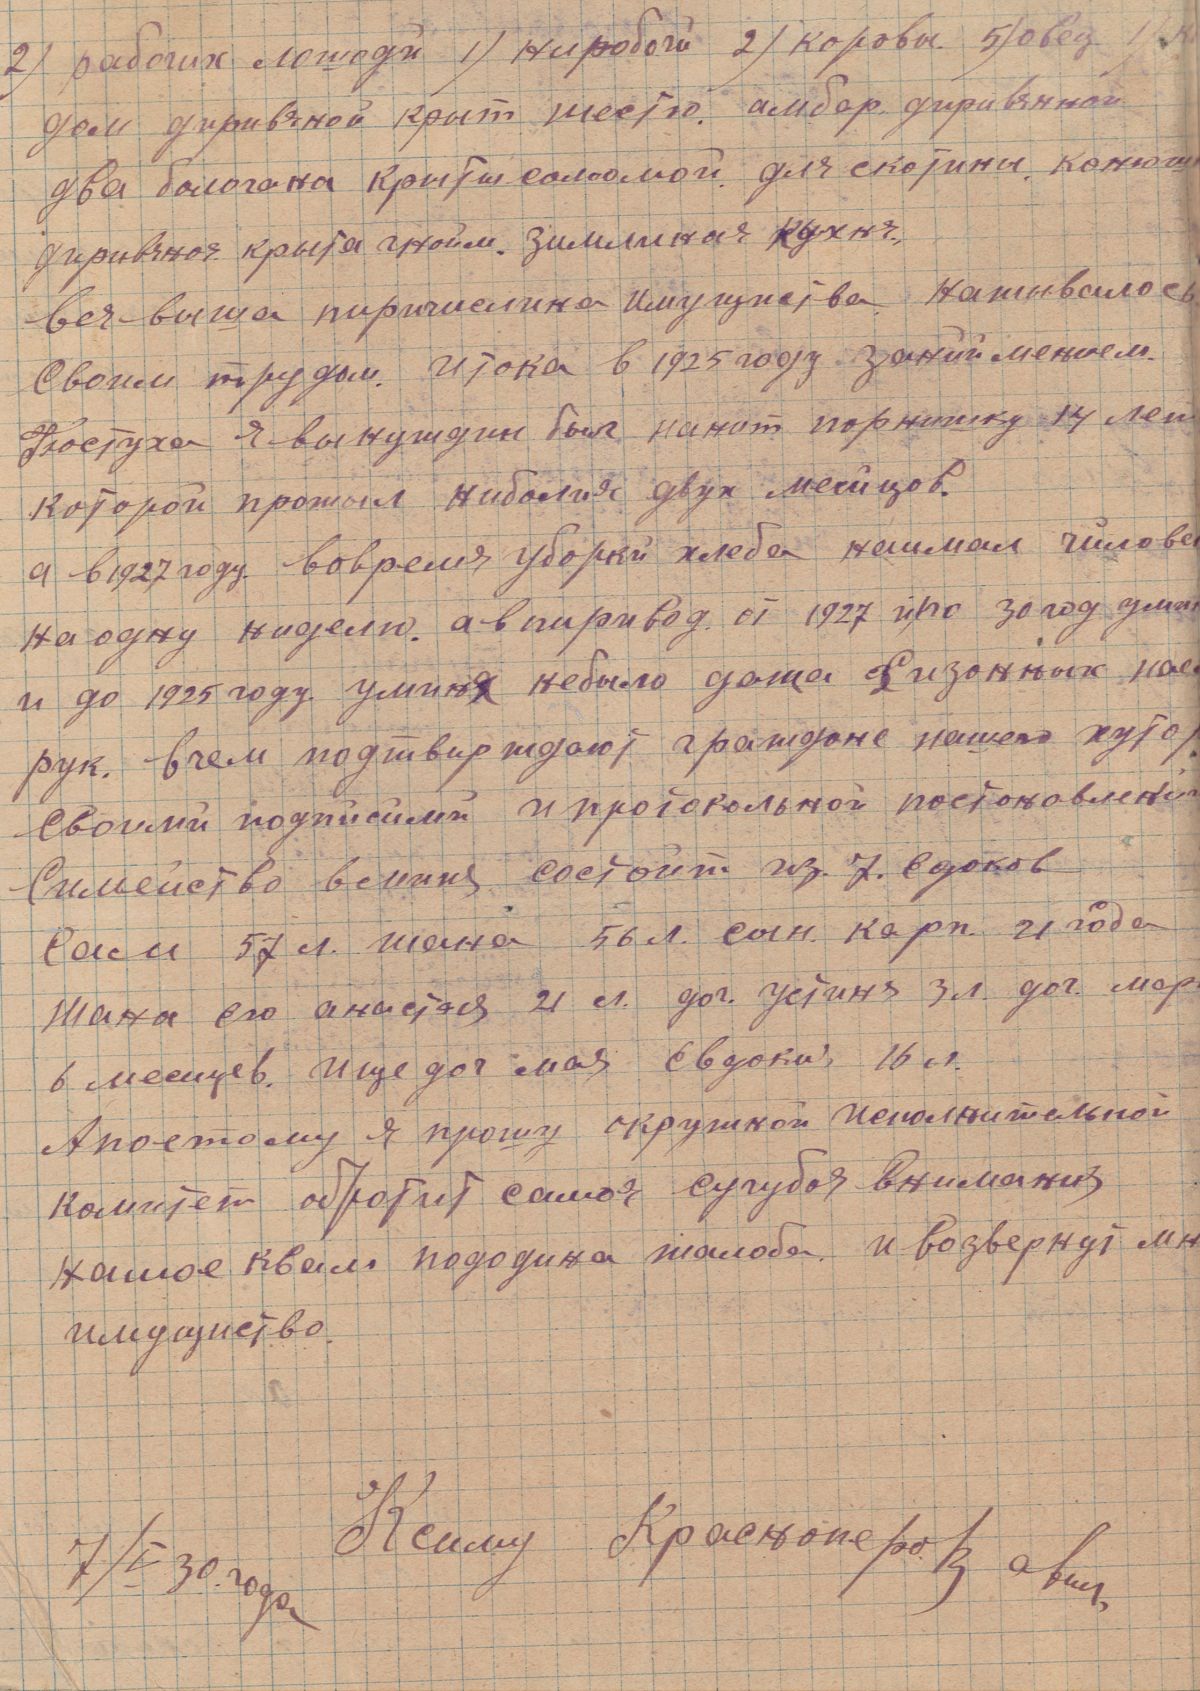 2) рабочих лошоди 1) ниробочи 2) коровы. 5) овец 1)
дом диривяной крыт жестю. амбар диривянной
два балагана крыти соломой. для скотины. конюш
диривяноя крыта гноим. зимлиная кухня.
вся выша пиричислина имущиства наживалось
Своим трудом. итока в 1925 году заниймением.
Постуха я вынуждин был нанят парнишку 14 лет
которой прожил ниболия двух месицов.
а в 1927 году. вовремя уборки хлеба наимал чилове
на одну ниделю. а в пиривод от 1927 ипо 30 год умин
и до 1925 году. уминя небыло дажа сизонных нае
рук. вчем подтвирждают граждане нашего хутор
Своими подписими и протокольной постоновлений
Симейство вминя состоит из. 7. едоков
Сам 57 л. жана 56 л. сын. карп. 21 года
жана его анастея 21 л. доч. устиня 3 л. доч. мар
6 месицев. ище доч мая Евдокия 16 л.
Апоетому я прошу окружной исполнительной
комитет обротит самоя сугубоя внимания
намое квам пододина жалоба. и возвернут мн
имущиство.
7/V 30. года Ксиму Красноперов